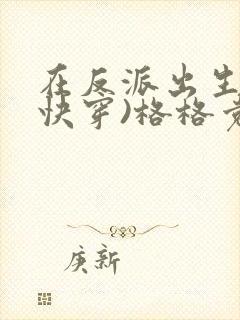 在反派出生
快穿)格格
庚新